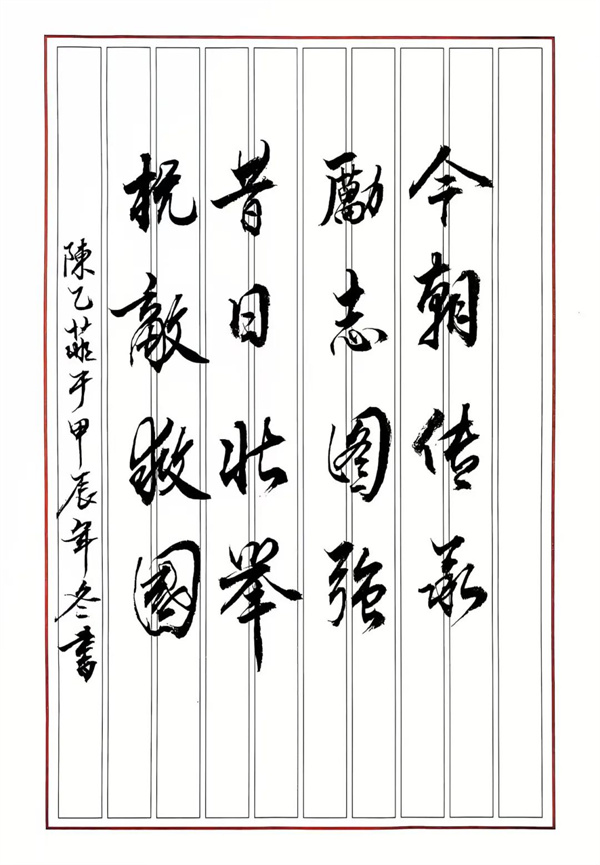 今朝传承
勵志图强
昔日壮举
抗敵救國
陳乙菲于甲辰年冬書